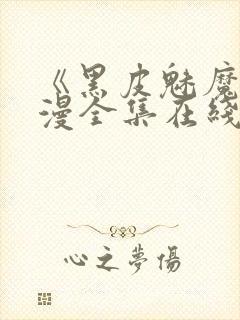 《黑皮魅魔
漫全集在线
心之夢傷